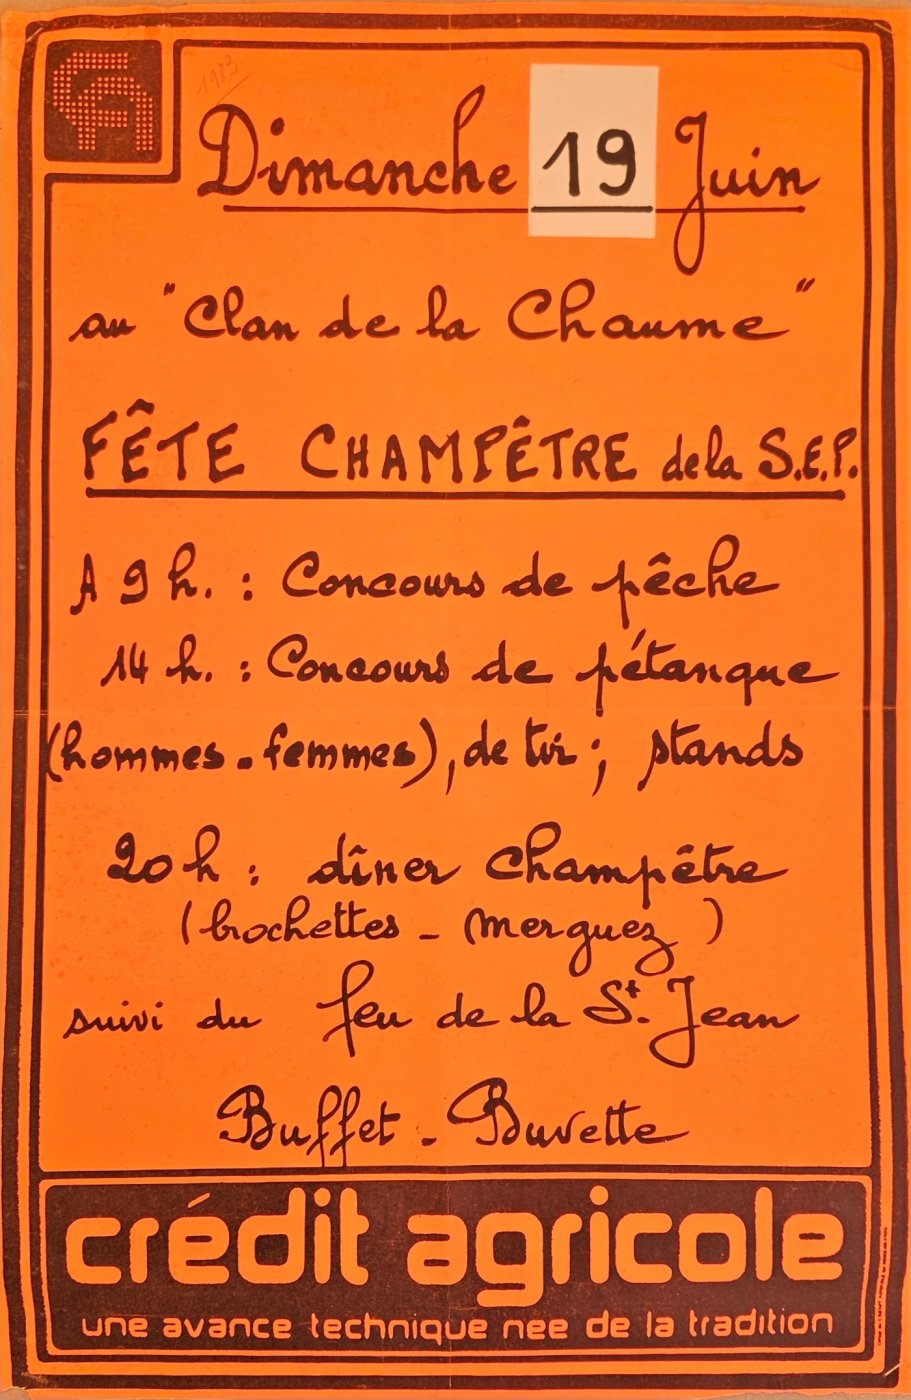 1983
Dimanche 19 Juin
au "Clan de la Chaume"
FÊTE CHAMPÊTRE de la S.E.P.
A 9 h. : Concours de pêche
14 h. : Concours de pétanque
(hommes - femmes), de tir ; stands
20 h : dîner champêtre
(brochettes - merguez)
suivi du feu de la St. Jean
Buffet - Buvette
crédit agricole
une avance technique née de la tradition